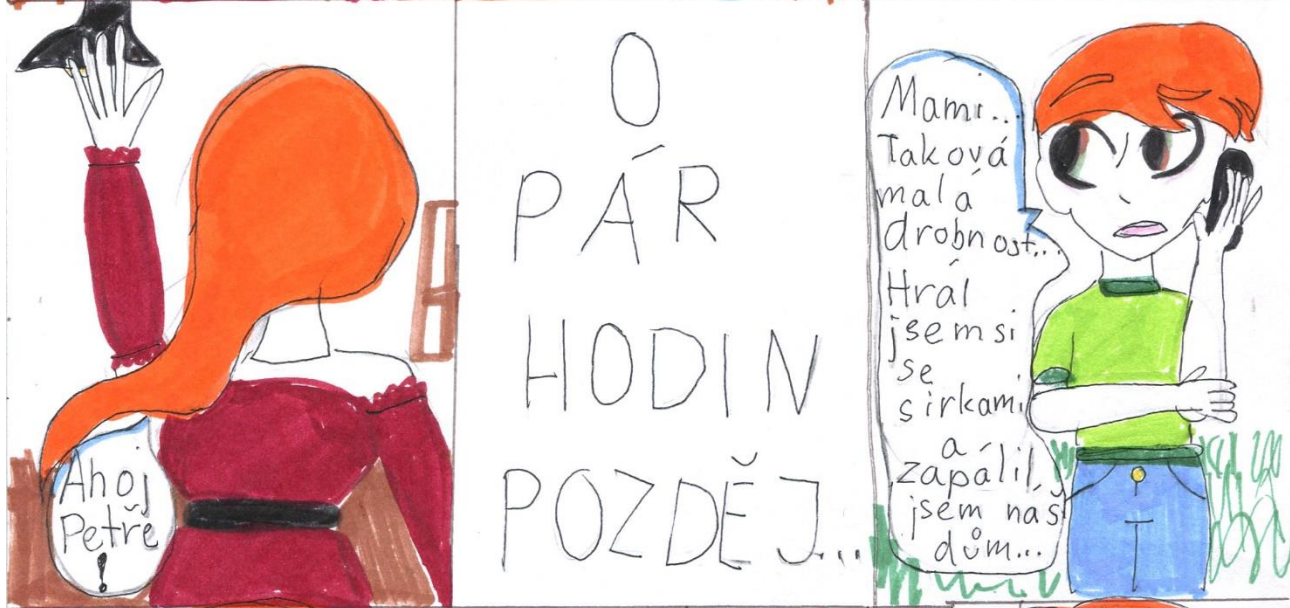 Ahoj
Petře
!
O
PÁR
HODIN
POZDĚJ...
Mami...
Taková
malá
drobnost...
Hrál
jsem si
se
sirkami
a
zapálil
jsem náš
dům...